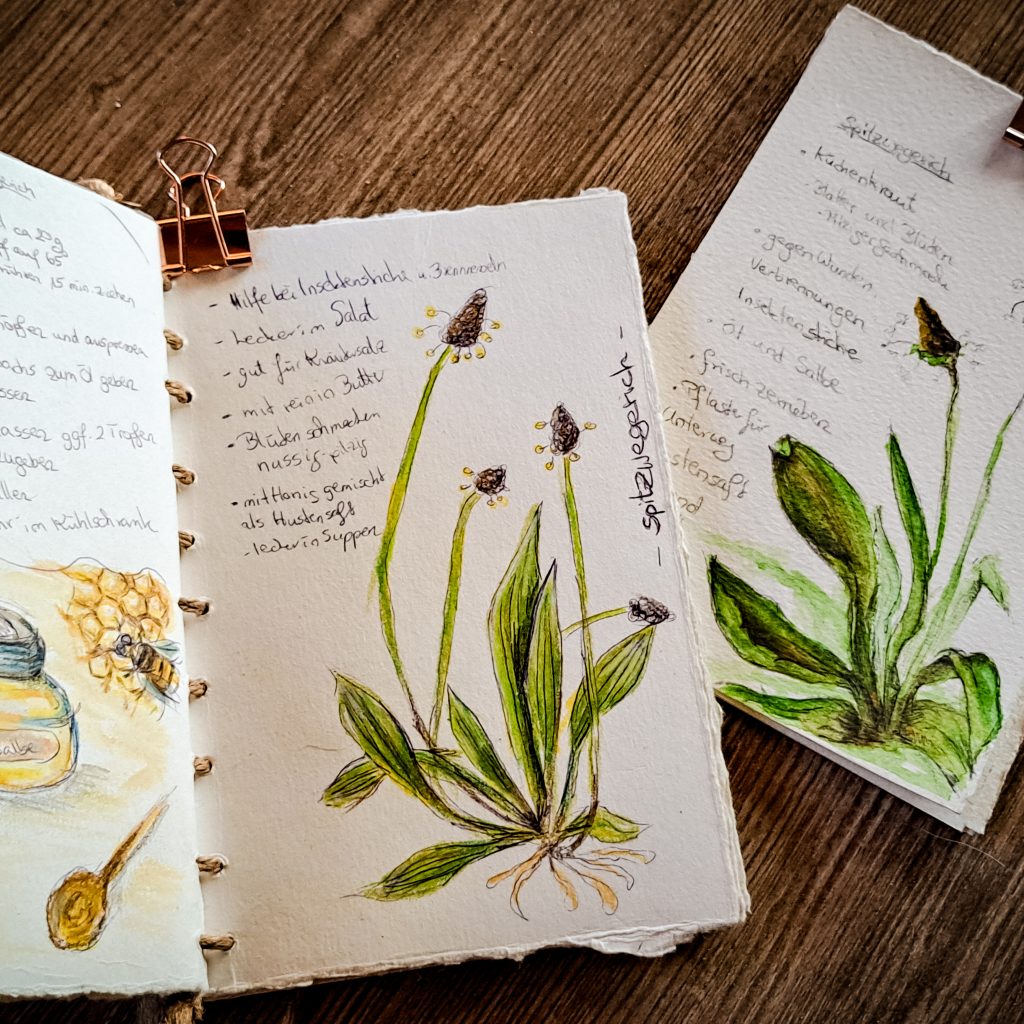 ca 20g
auf 65
rühren 15 min. ziehen
Tropfen und auspressen
wachs zum Öl geben
lassen ggf. 2 Tropfen
zugeben
im Kühlschrank
Salbe
- Hilfe bei Insektenstiche u. Brennnesseln
- Lecker im Salat
- gut für Kräutersalz
- mit rein in Butter
- Blüten schmecken
nussig-pilzig
- mit Honig gemischt
als Hustensaft
- lecker in Suppen
- Spitzwegerich -
Spitzwegerich
• Küchenkraut
- Blätter und Blüten
• gegen Wunden,
Verbrennungen
Insektenstiche
• Öl und Salbe
• frisch zerreiben
• Pflaster für
Unterweg
stensaft
nd